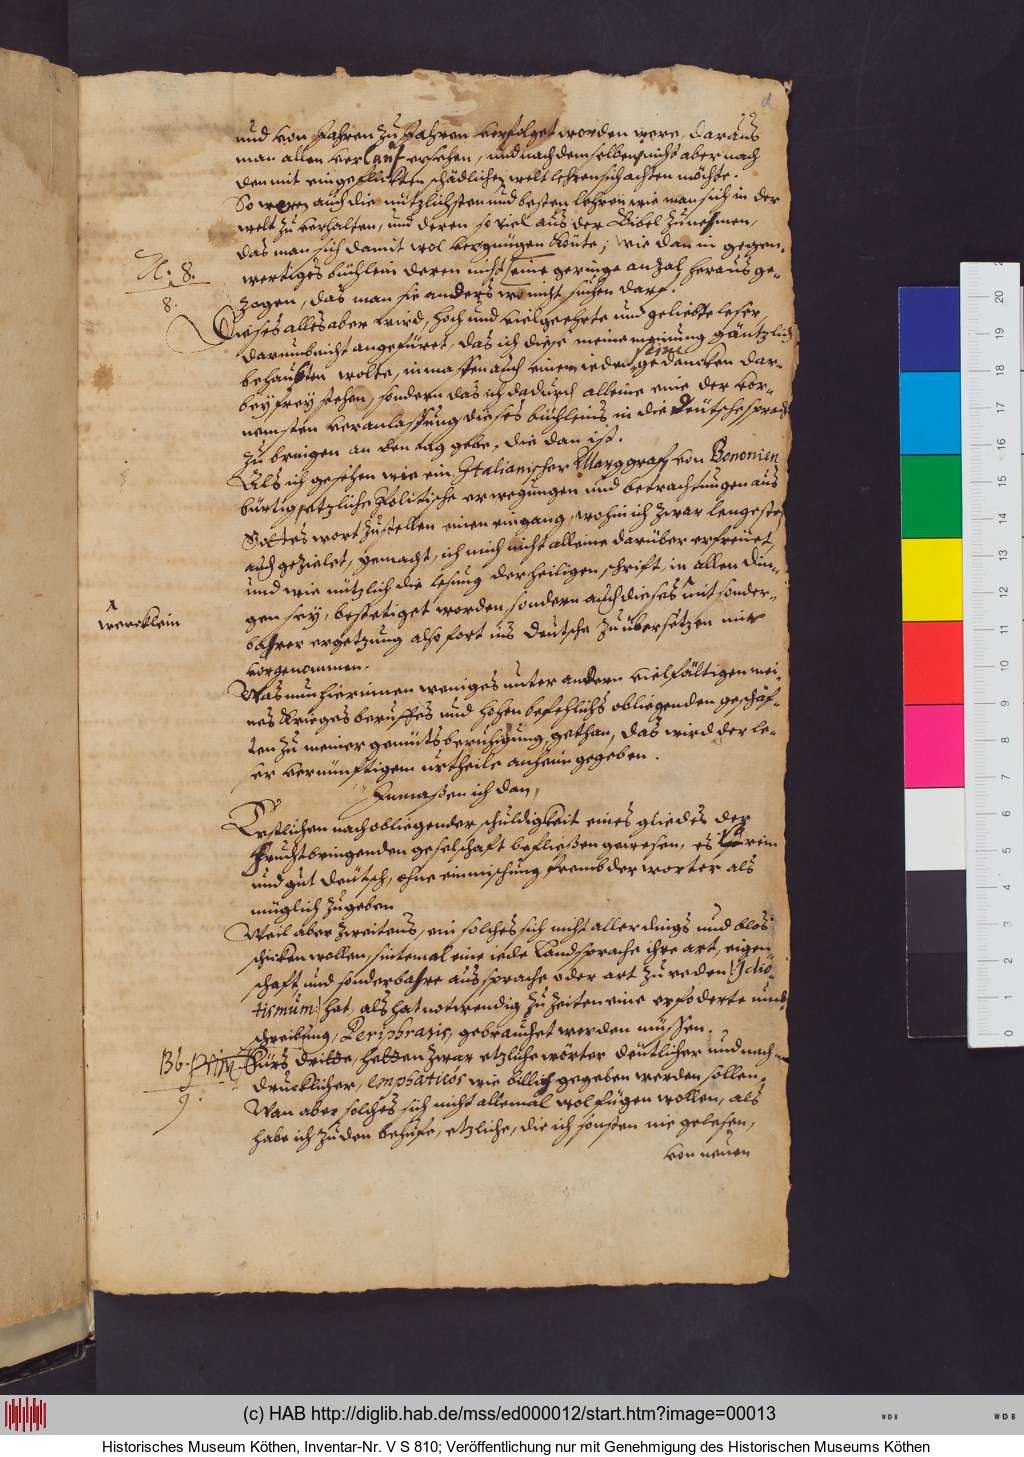 d
und von Jahren zu Jahren verfolget worden were, daraus
man allen verlauf ersehen, und nach demselben nicht aber nach
den mit eingeflickten schädlichen welt lehren sich achten möchte.
So weren auch die nützlichsten und besten lehren wie man sich in der
welt zu verhalten, und deren so viel aus der Bibel zunehmen,
das man sich damit wol vergnügen könte; wie dan in gegen-
wertiges büchlein deren nicht eine geringe anzal heraus ge-
zogen, das man sie anders wo nicht suchen darf.
8.
8.
Dieses alles aber wird, hoch und vielgeehrte und geliebte leser,
darumb nicht angefüret, das ich diese meine meinung gäntzlich
behaubten wolte, inmassen auch einem ieden seine gedancken dar-
bey frey stehen, sondern das ich dadurch alleine eine der vor-
nemsten veranlassung dieses büchleins in die Deutsche sprach
zu bringen an den tag gebe, die dan ist.
Als ich gesehen wie ein Italianischer Marggraf von Bononien
bürtig etzliche Politische erwegungen und betrachtungen aus
Gottes wort zustellen einen eingang, wohin ich zwar lengesten
auch gezielet, gemacht, ich mich nicht alleine darüber erfreuet,
und wie nützlich die lesung der heiligen schrift, in allen din-
gen sey, bestetiget worden, sondern auch dieses mit sonder-
wercklein
bahrer ergetzung also fort ins deutsche zu übersetzen mir
vorgenommen.
Was nun hierinnen weniges unter andern vielfältigen mei-
nes Krieges beruffes und hohen befehlichs obliegenden geschäf-
ten zu meiner gemütsberuhigung, gethan, das wird der le-
er vernünftigem urtheile anheim gegeben.
Inmaßen ich dan,
Erstlichen nach obliegender schuldigkeit eines gliedes der
Fruchtbringenden geselschaft befließen gewesen, es rein
und gut deutsch, ohne einmischung frembder worter als
müglich zugeben
Weil aber zweitens, ein solches sich nicht allerdings und blos
schicken wollen, sintemal eine iede Landsprache ihre art, eigen-
schaft, und sonderbahre aussprache oder art zu reden / Idio-
tismum / hat, als hat notwendig zu zeiten eine erfoderte umb-
schreibung, Periphrasis, gebrauchet werden müssen.
Fürs dritte, hetten zwar etzliche wörter deutlicher und nach-
9.
drucklicher, emphaticos wie billich gegeben werden sollen,
Wan aber solches sich nicht allemal wol fügen wollen, als
habe ich zu den behufe, etzliche, die ich sonsten nie gelesen,
von neuen
(c) HAB http://diglib.hab.de/mss/ed000012/start.htm?image=00013
Historisches Museum Köthen, Inventar-Nr. V S 810; Veröffentlichung nur mit Genehmigung des Historischen Museums Köthen